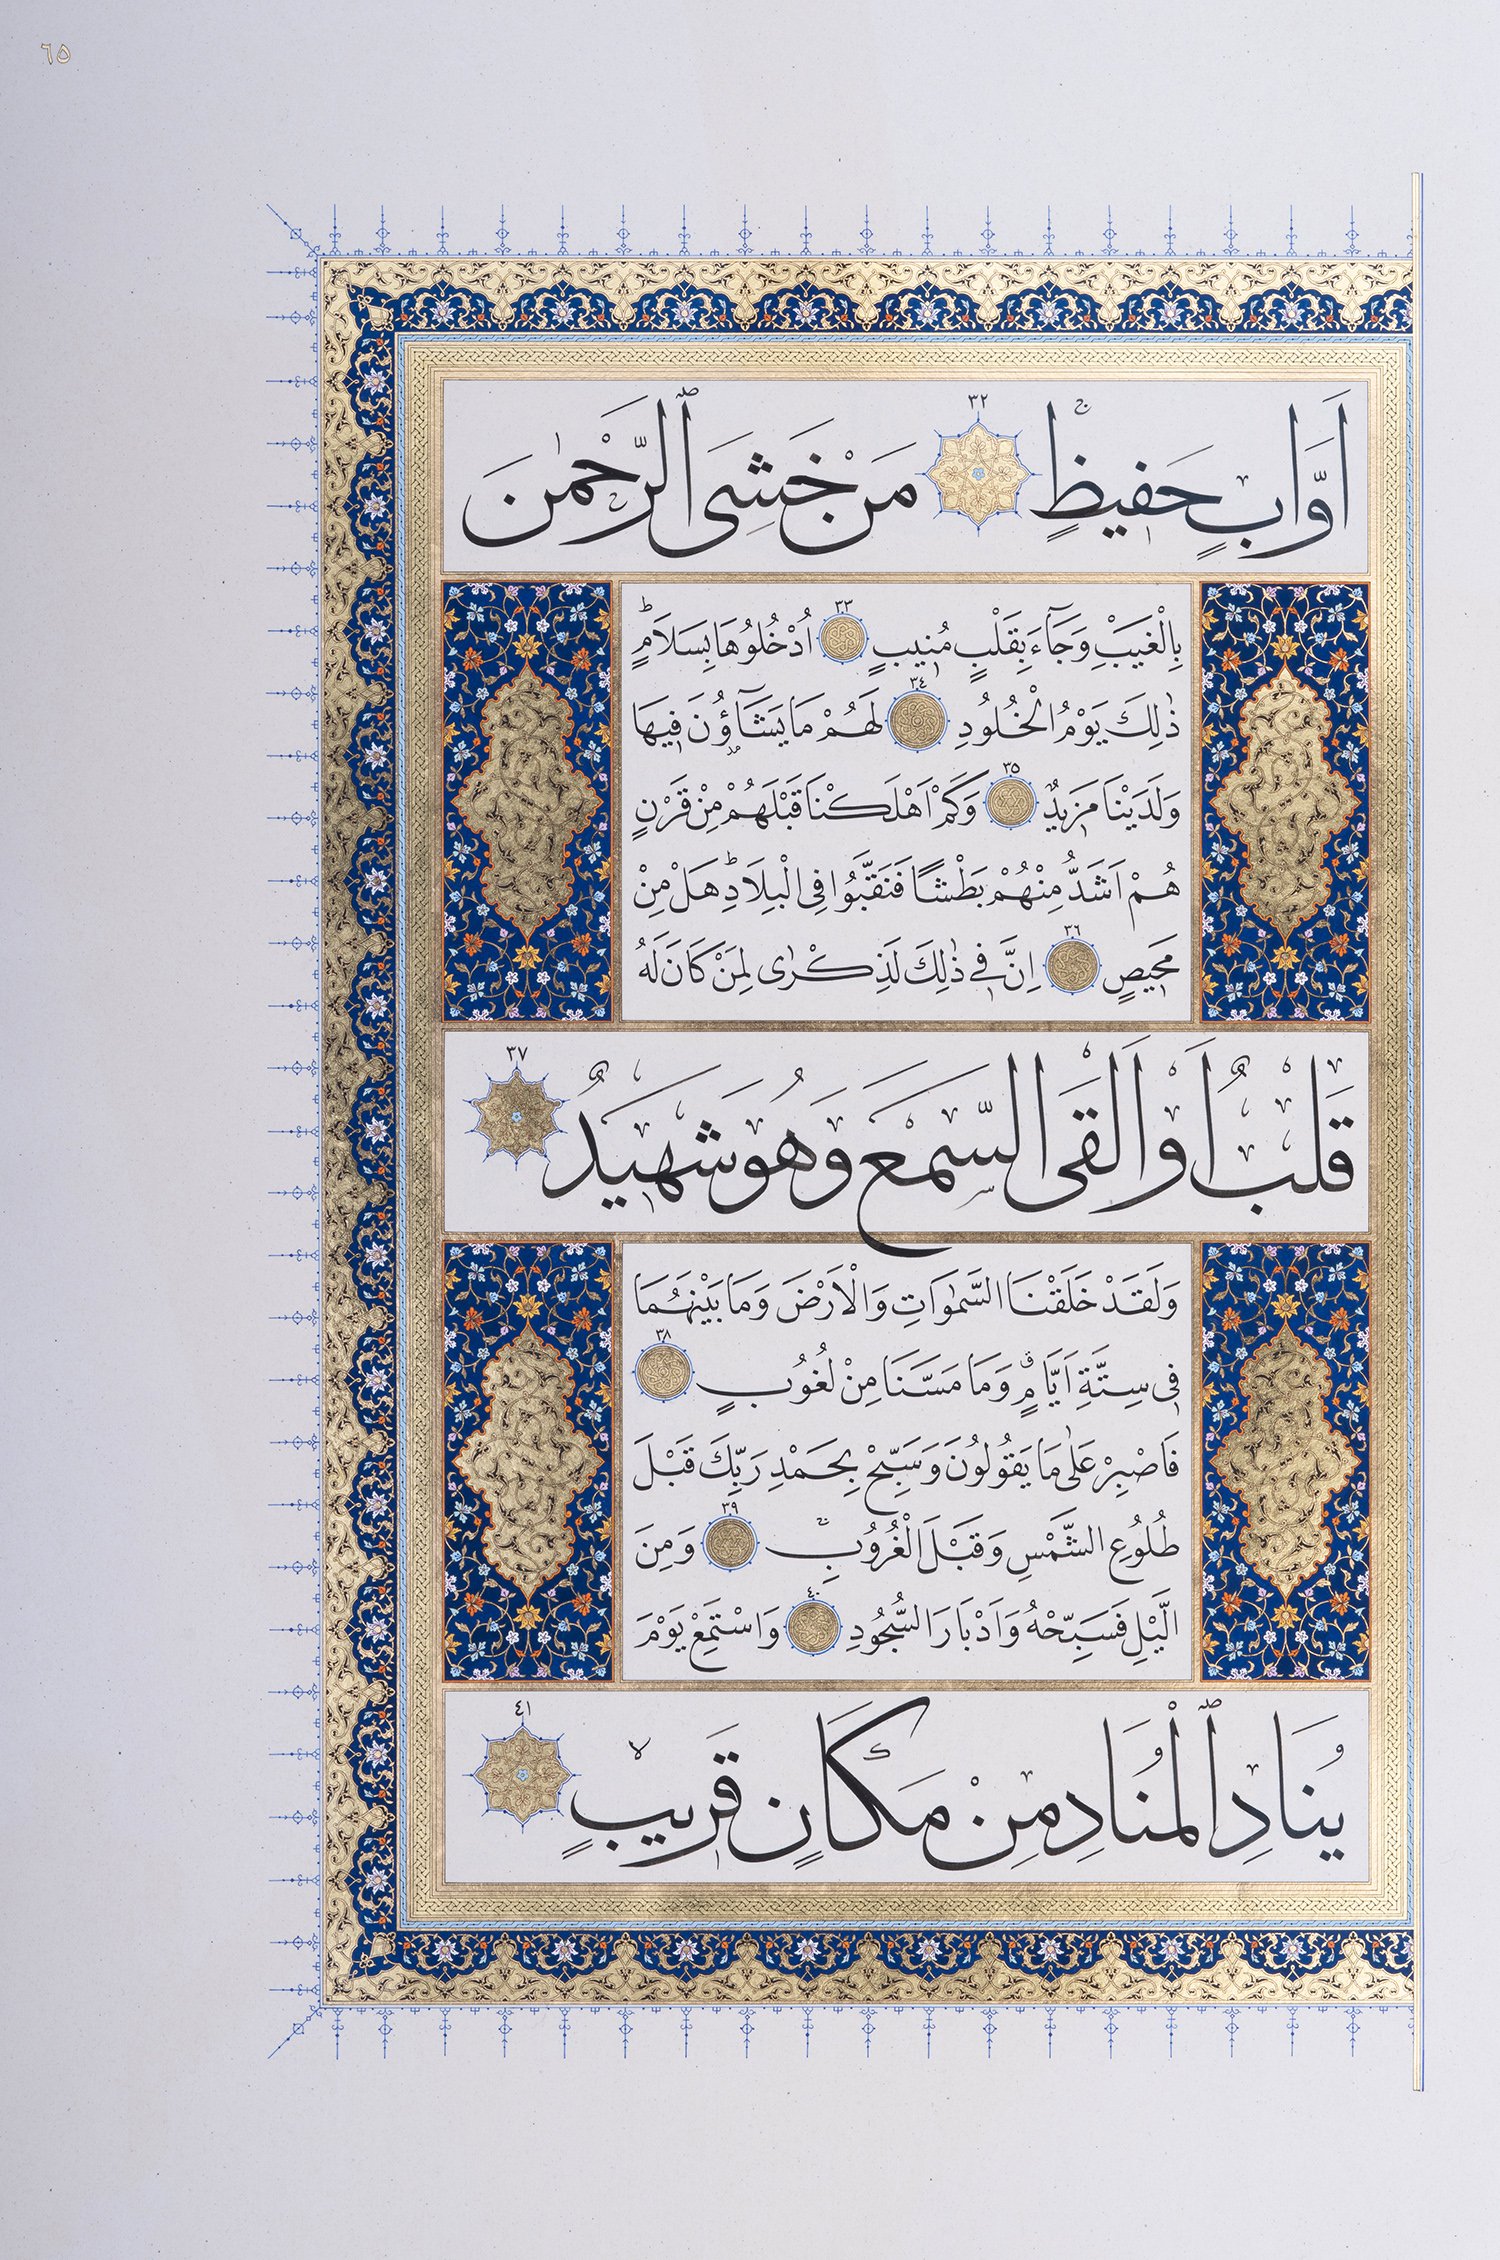 ٦٥
اَوَّابٍ حَفٖيظٍ ٣٢ مَنْ خَشِىَ ٱلرَّحْمٰنَ
بِالْغَيْبِ وَجَآءَ بِقَلْبٍ مُنٖيبٍ ٣٣ اُدْخُلُوهَا بِسَلَامٍؕ
ذٰلِكَ يَوْمُ الْخُلُودِ ٣٤ لَهُمْ مَا يَشَآؤُنَ فٖيهَا
وَلَدَيْنَا مَزٖيدٌ ٣٥ وَكَمْ اَهْلَكْنَا قَبْلَهُمْ مِنْ قَرْنٍ
هُمْ اَشَدُّ مِنْهُمْ بَطْشًا فَنَقَّبُوا فِى الْبِلَادِؕ هَلْ مِنْ
مَحٖيصٍ ٣٦ اِنَّ فٖى ذٰلِكَ لَذِكْرٰى لِمَنْ كَانَ لَهُ
قَلْبٌ اَوْ اَلْقَى السَّمْعَ وَهُوَ شَهٖيدٌ ٣٧
وَلَقَدْ خَلَقْنَا السَّمٰوَاتِ وَالْاَرْضَ وَمَا بَيْنَهُمَا
فٖى سِتَّةِ اَيَّامٍۗ وَمَا مَسَّنَا مِنْ لُغُوبٍ ٣٨
فَاصْبِرْ عَلٰى مَا يَقُولُونَ وَسَبِّحْ بِحَمْدِ رَبِّكَ قَبْلَ
طُلُوعِ الشَّمْسِ وَقَبْلَ الْغُرُوبِ ٣٩ وَمِنَ
الَّيْلِ فَسَبِّحْهُ وَاَدْبَارَ السُّجُودِ ٤٠ وَاسْتَمِعْ يَوْمَ
يُنَادِ ٱلْمُنَادِ مِنْ مَكَانٍ قَرٖيبٍۙ ٤١